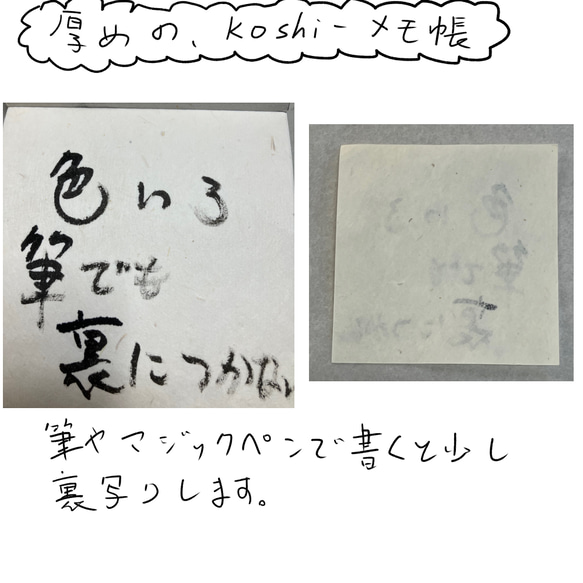 厚めの、koshiーメモ帳
色いろ
筆でも
裏につかない
筆やマジックペンで書くと少し
裏写りします。